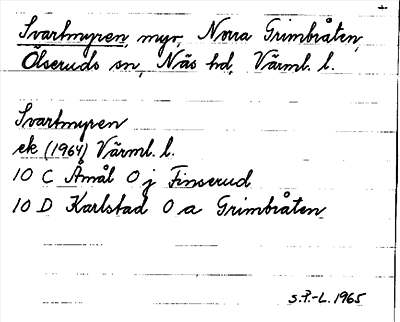 Svartmyren, myr, Norra Grimbråten,
Ölseruds sn, Näs hd, Värml. l.
Svartmyren
ek (1964) Värml. l.
10 C Åmål 0 j Finserud
10 D Karlstad 0 a Grimbråten
S.P.-L. 1965